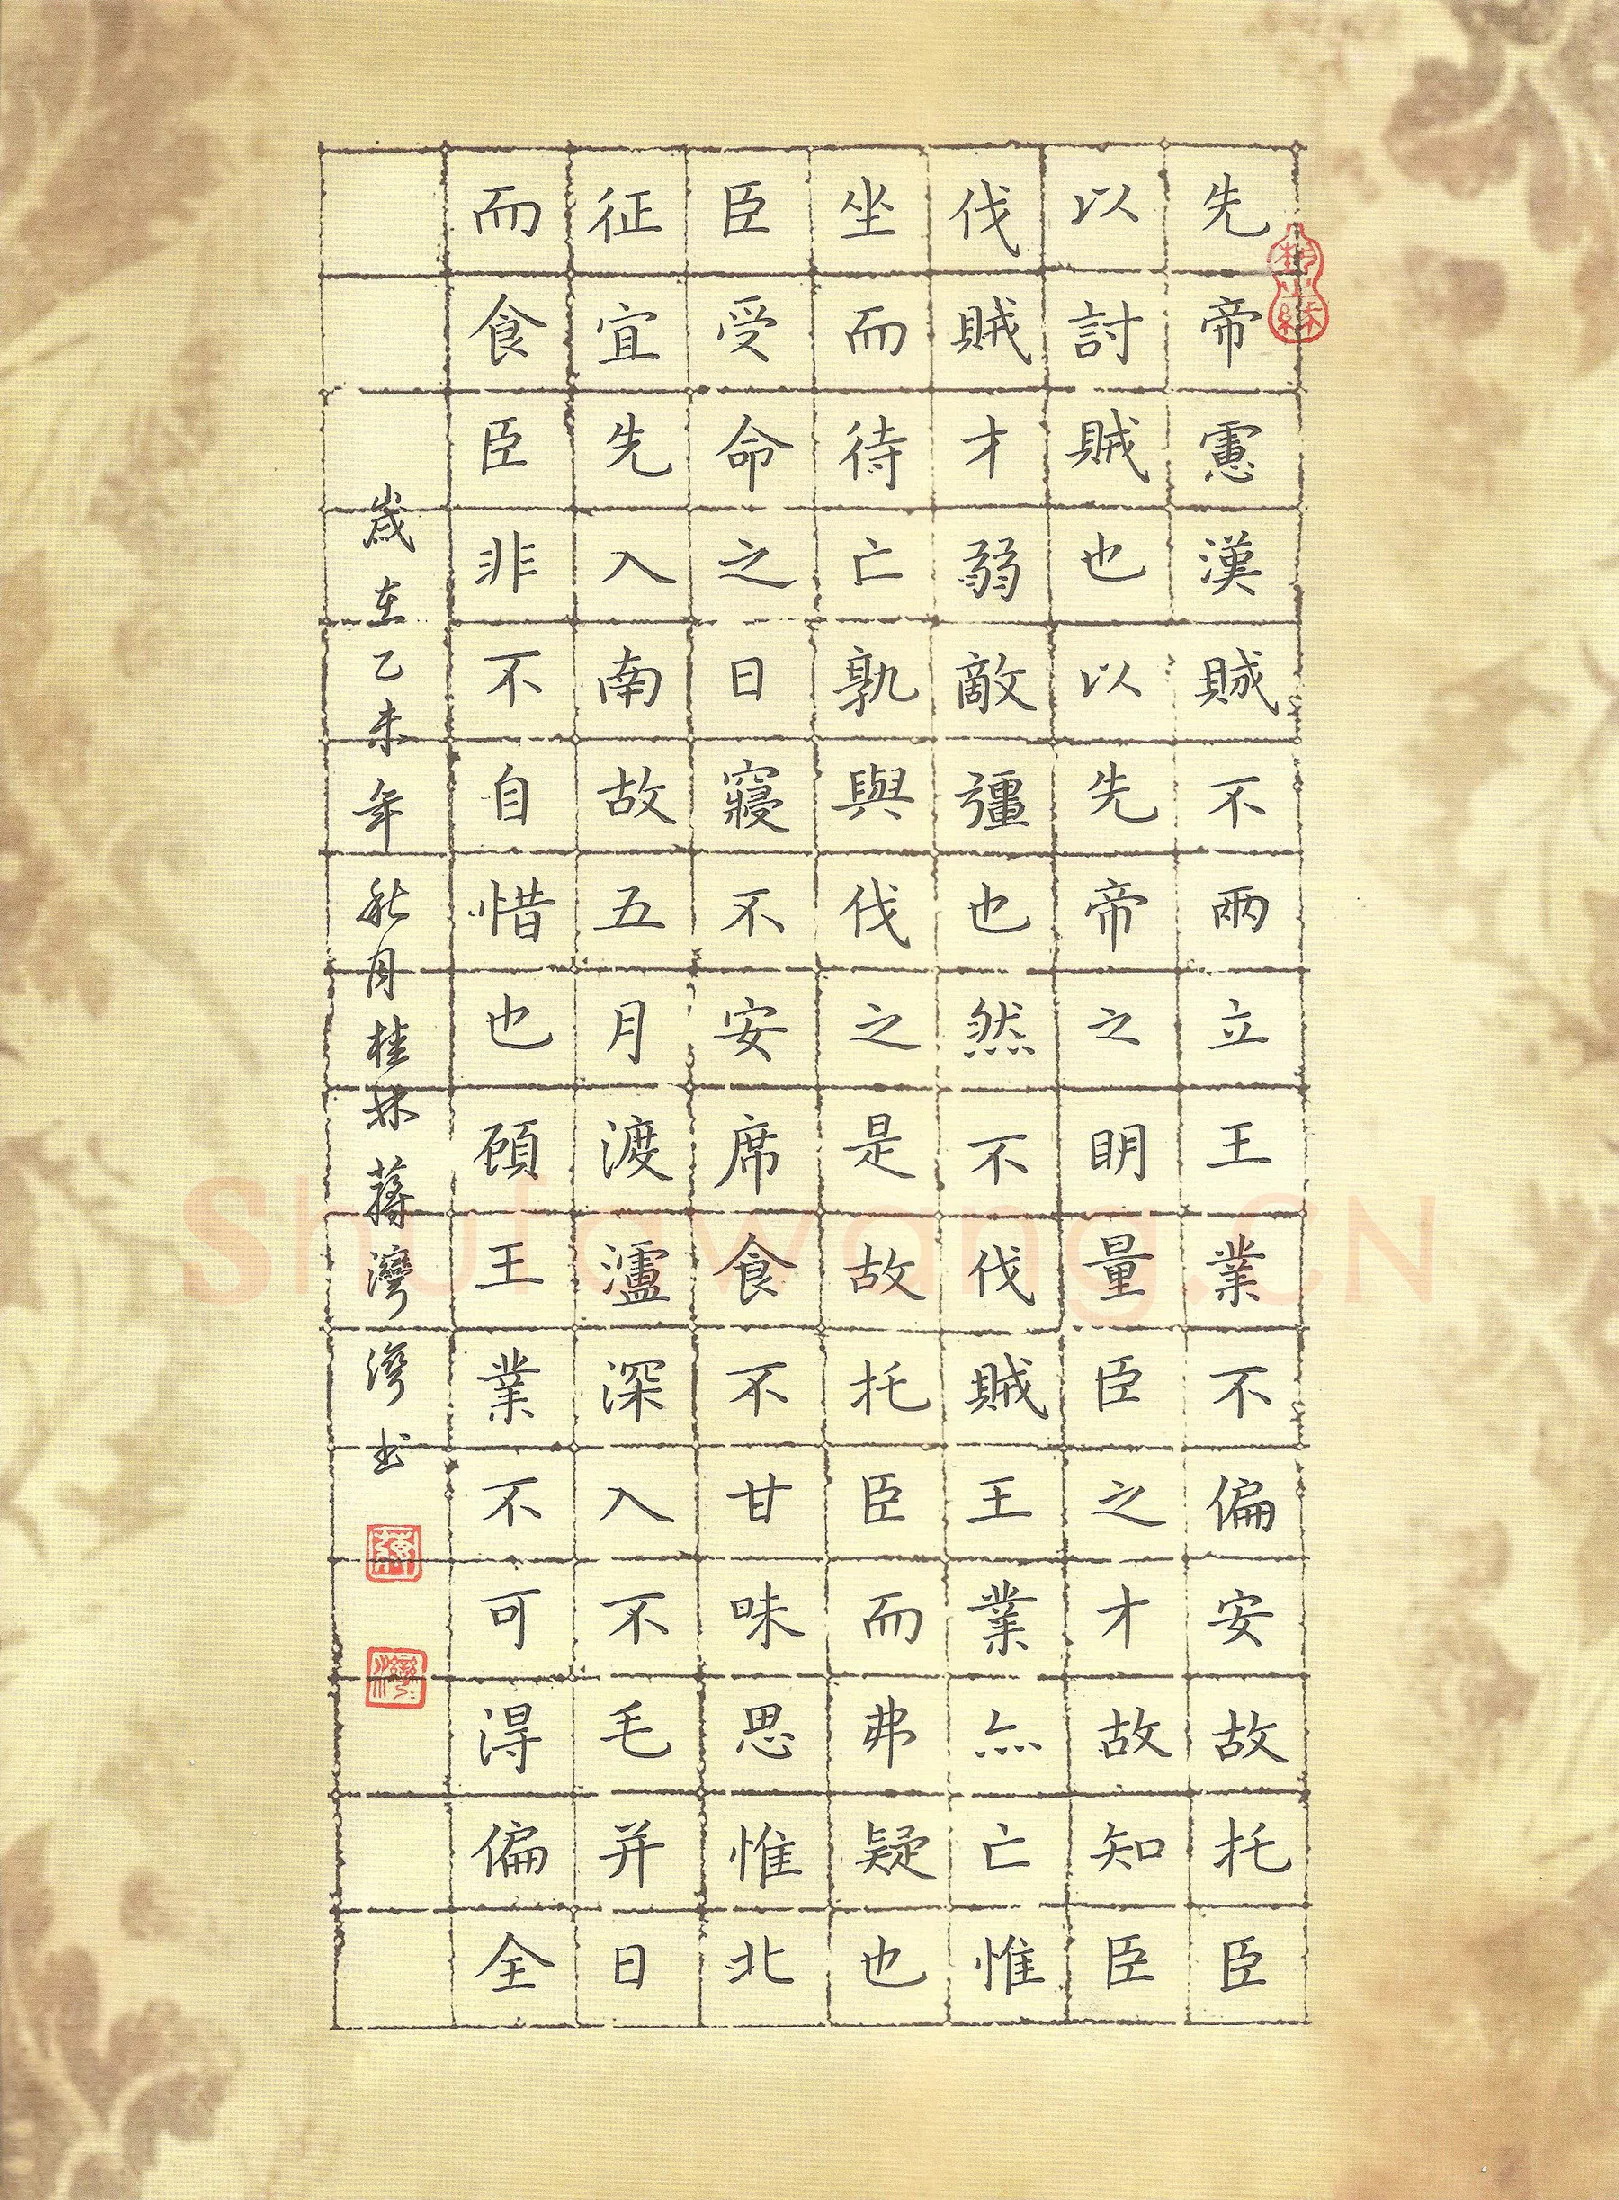 先帝慮漢賊不兩立王業不偏安故托臣
以討賊也以先帝之明量臣之才故知臣
伐賊才弱敵彊也然不伐賊王業亦亡惟
坐而待亡孰與伐之是故托臣而弗疑也
臣受命之日寢不安席食不甘味思惟北
征宜先入南故五月渡瀘深入不毛并日
而食臣非不自惜也顧王業不可得偏全
歲在乙未年秋月桂林蔣灣灣書
Shufawang.CN